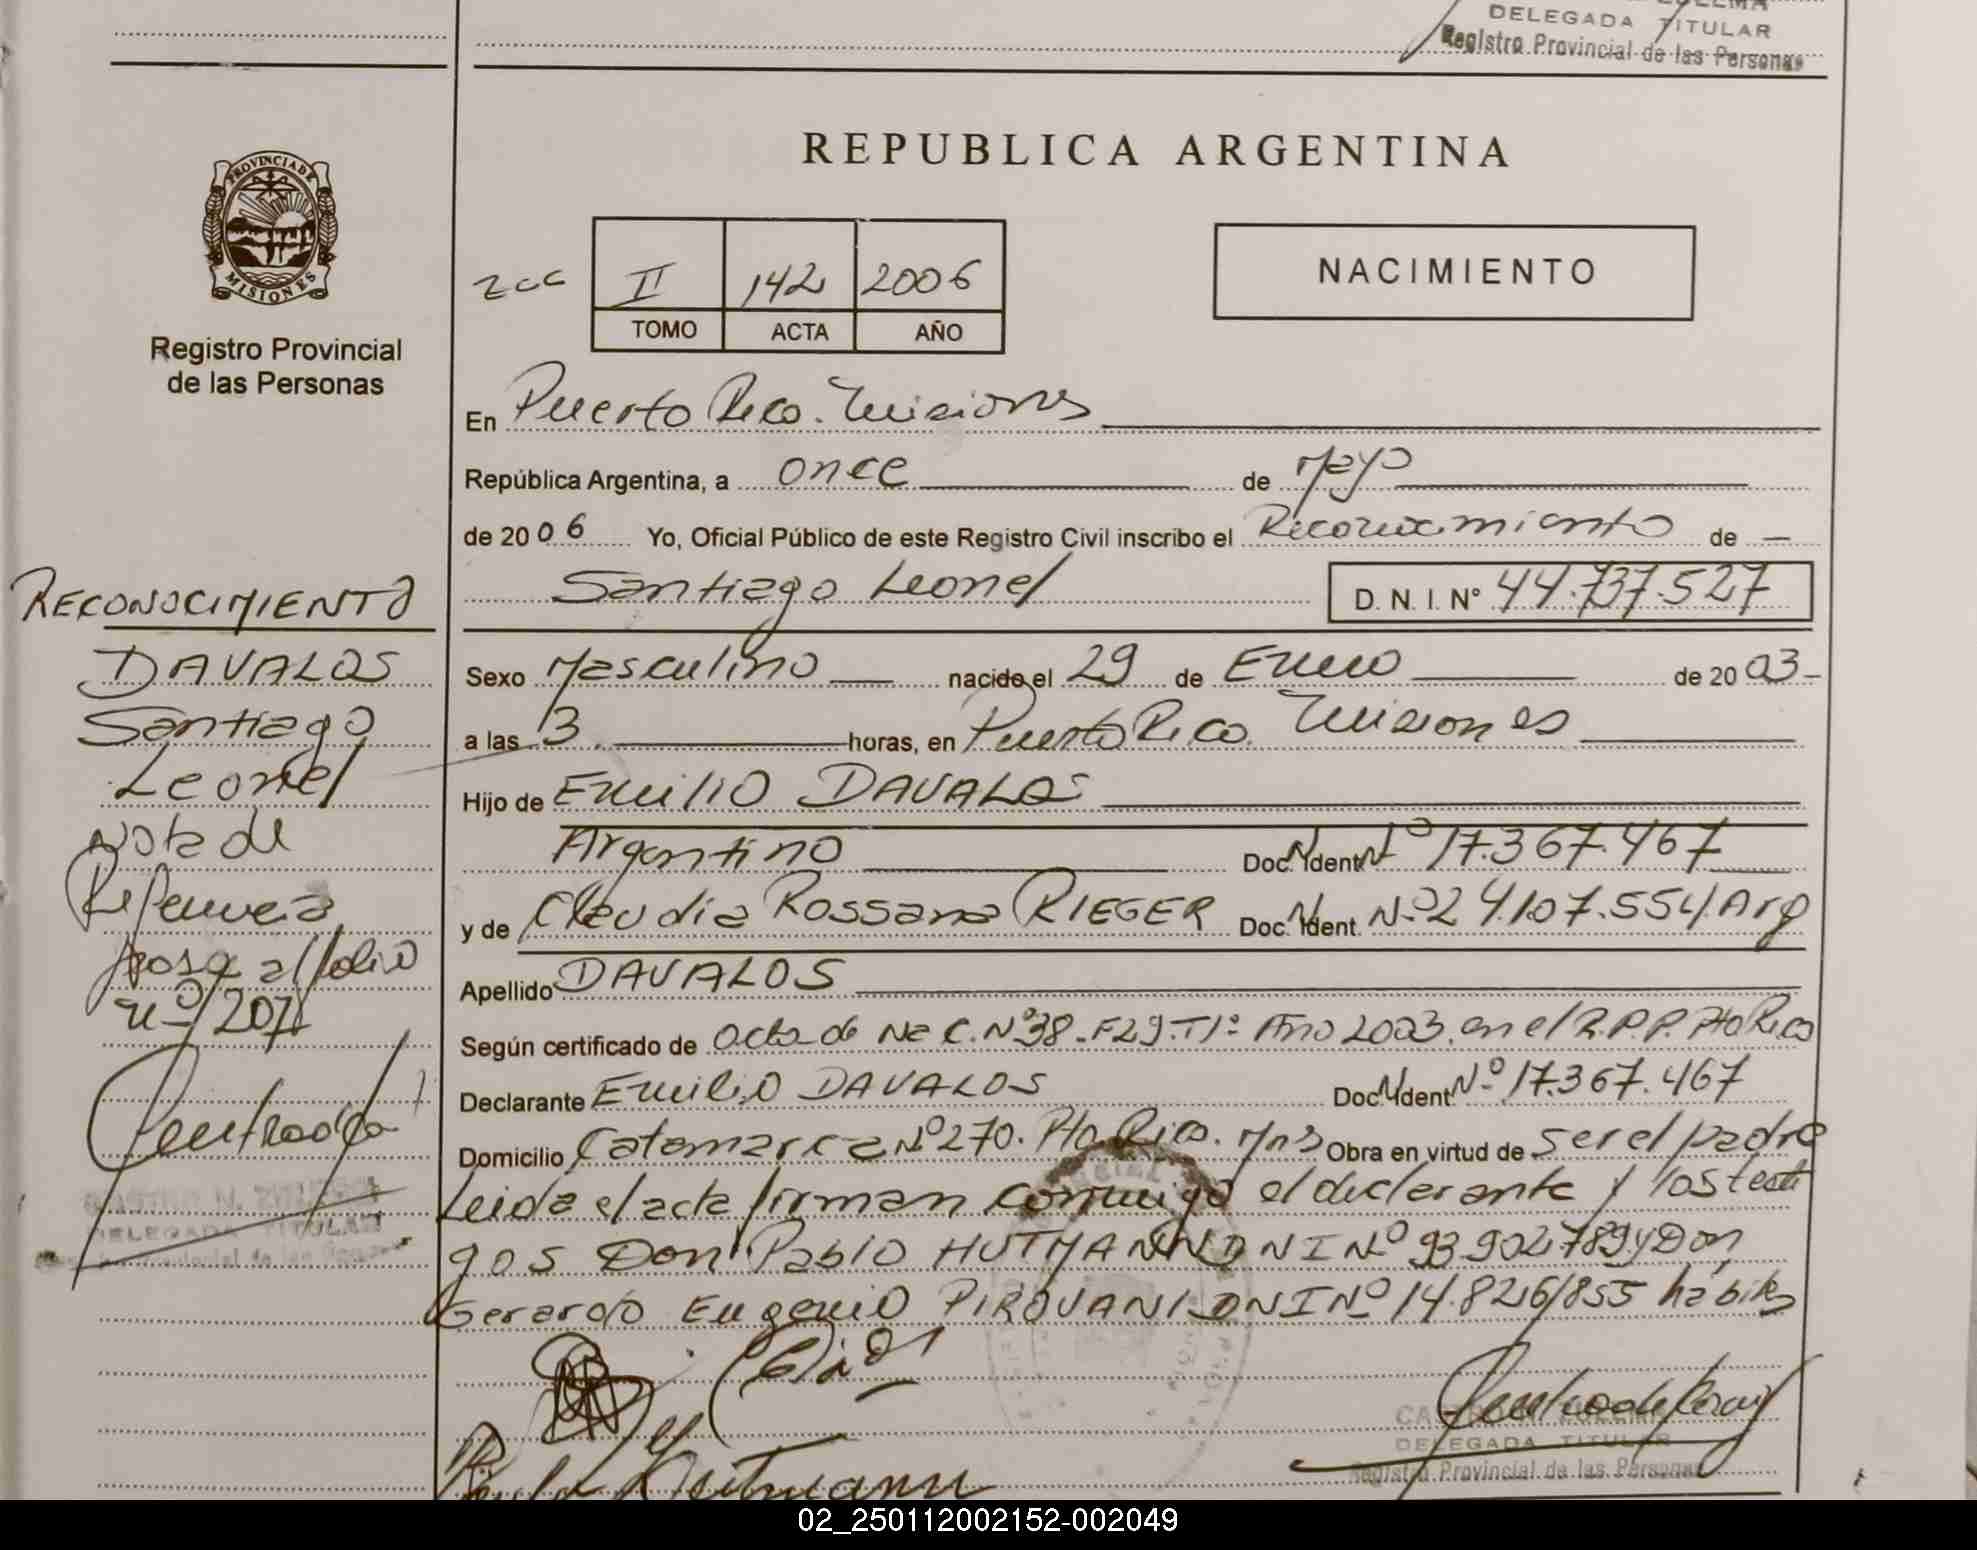 DELEGADA TITULAR
Registro Provincial de las Personas
REPUBLICA ARGENTINA
PROVINCIA DE
MISIONES
Registro Provincial
de las Personas
II 142 2006
TOMO ACTA AÑO
NACIMIENTO
En Puerto Rico. Misiones
República Argentina, a once de Mayo
de 2006 Yo, Oficial Público de este Registro Civil inscribo el Reconocimiento de —
Santiago Leonel D. N. I. N° 44.737.527
Sexo Masculino nacido el 29 de Enero de 2003-
a las 3 horas, en Puerto Rico. Misiones
Hijo de Emilio DAVALOS
Argentino Doc. Ident. N° 17.367.467
y de Claudia Rossana RIEGER Doc. Ident. N° 24.107.554 Arg
Apellido DAVALOS
Según certificado de Acta de Nac. N° 38-F29-T1° Año 2003 en el R.P.P. Pto Rico
Declarante Emilio DAVALOS Doc. Ident. N° 17.367.467
Domicilio Catamarca N° 270. Pto Rico. Mns Obra en virtud de ser el padre
Leida el acta firman conmigo el declarante y los testi
gos Don Pablo HUTMANN DNI N° 93.902.789 y Don
Gerardo Eugenio PIROVANI DNI N° 14.826.855 hábiles
DELEGADA TITULAR
Registro Provincial de las Personas
RECONOCIMIENTO
DAVALOS
Santiago
Leonel
Nota de
Referencia
al folio
n° 207
DELEGADA TITULAR
02_250112002152-002049